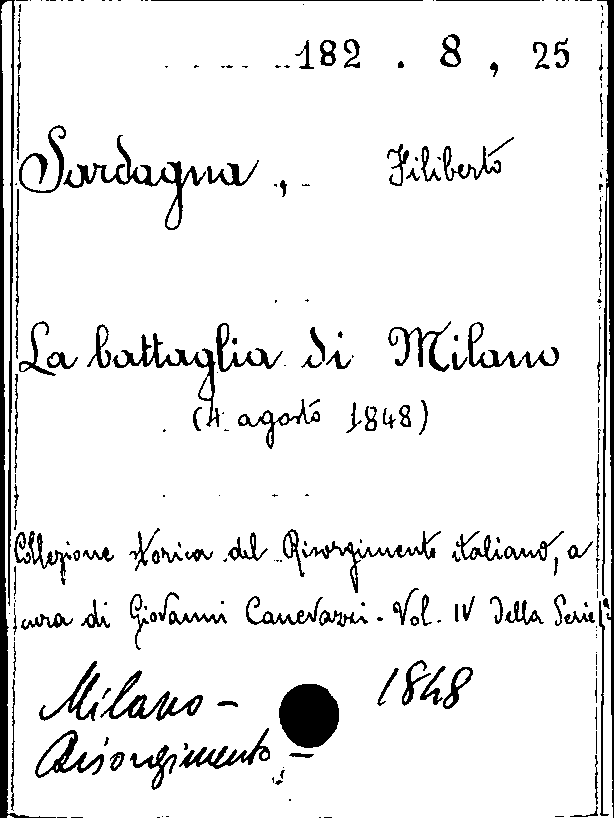 182 . 8 , 25
Sardagna , Filiberto
La battaglia di Milano
(4 agosto 1848)
Collezione storica del Risorgimento italiano, a
cura di Giovanni Canevazzi - Vol. IV della Serie
Milano - 1848
Risorgimento -